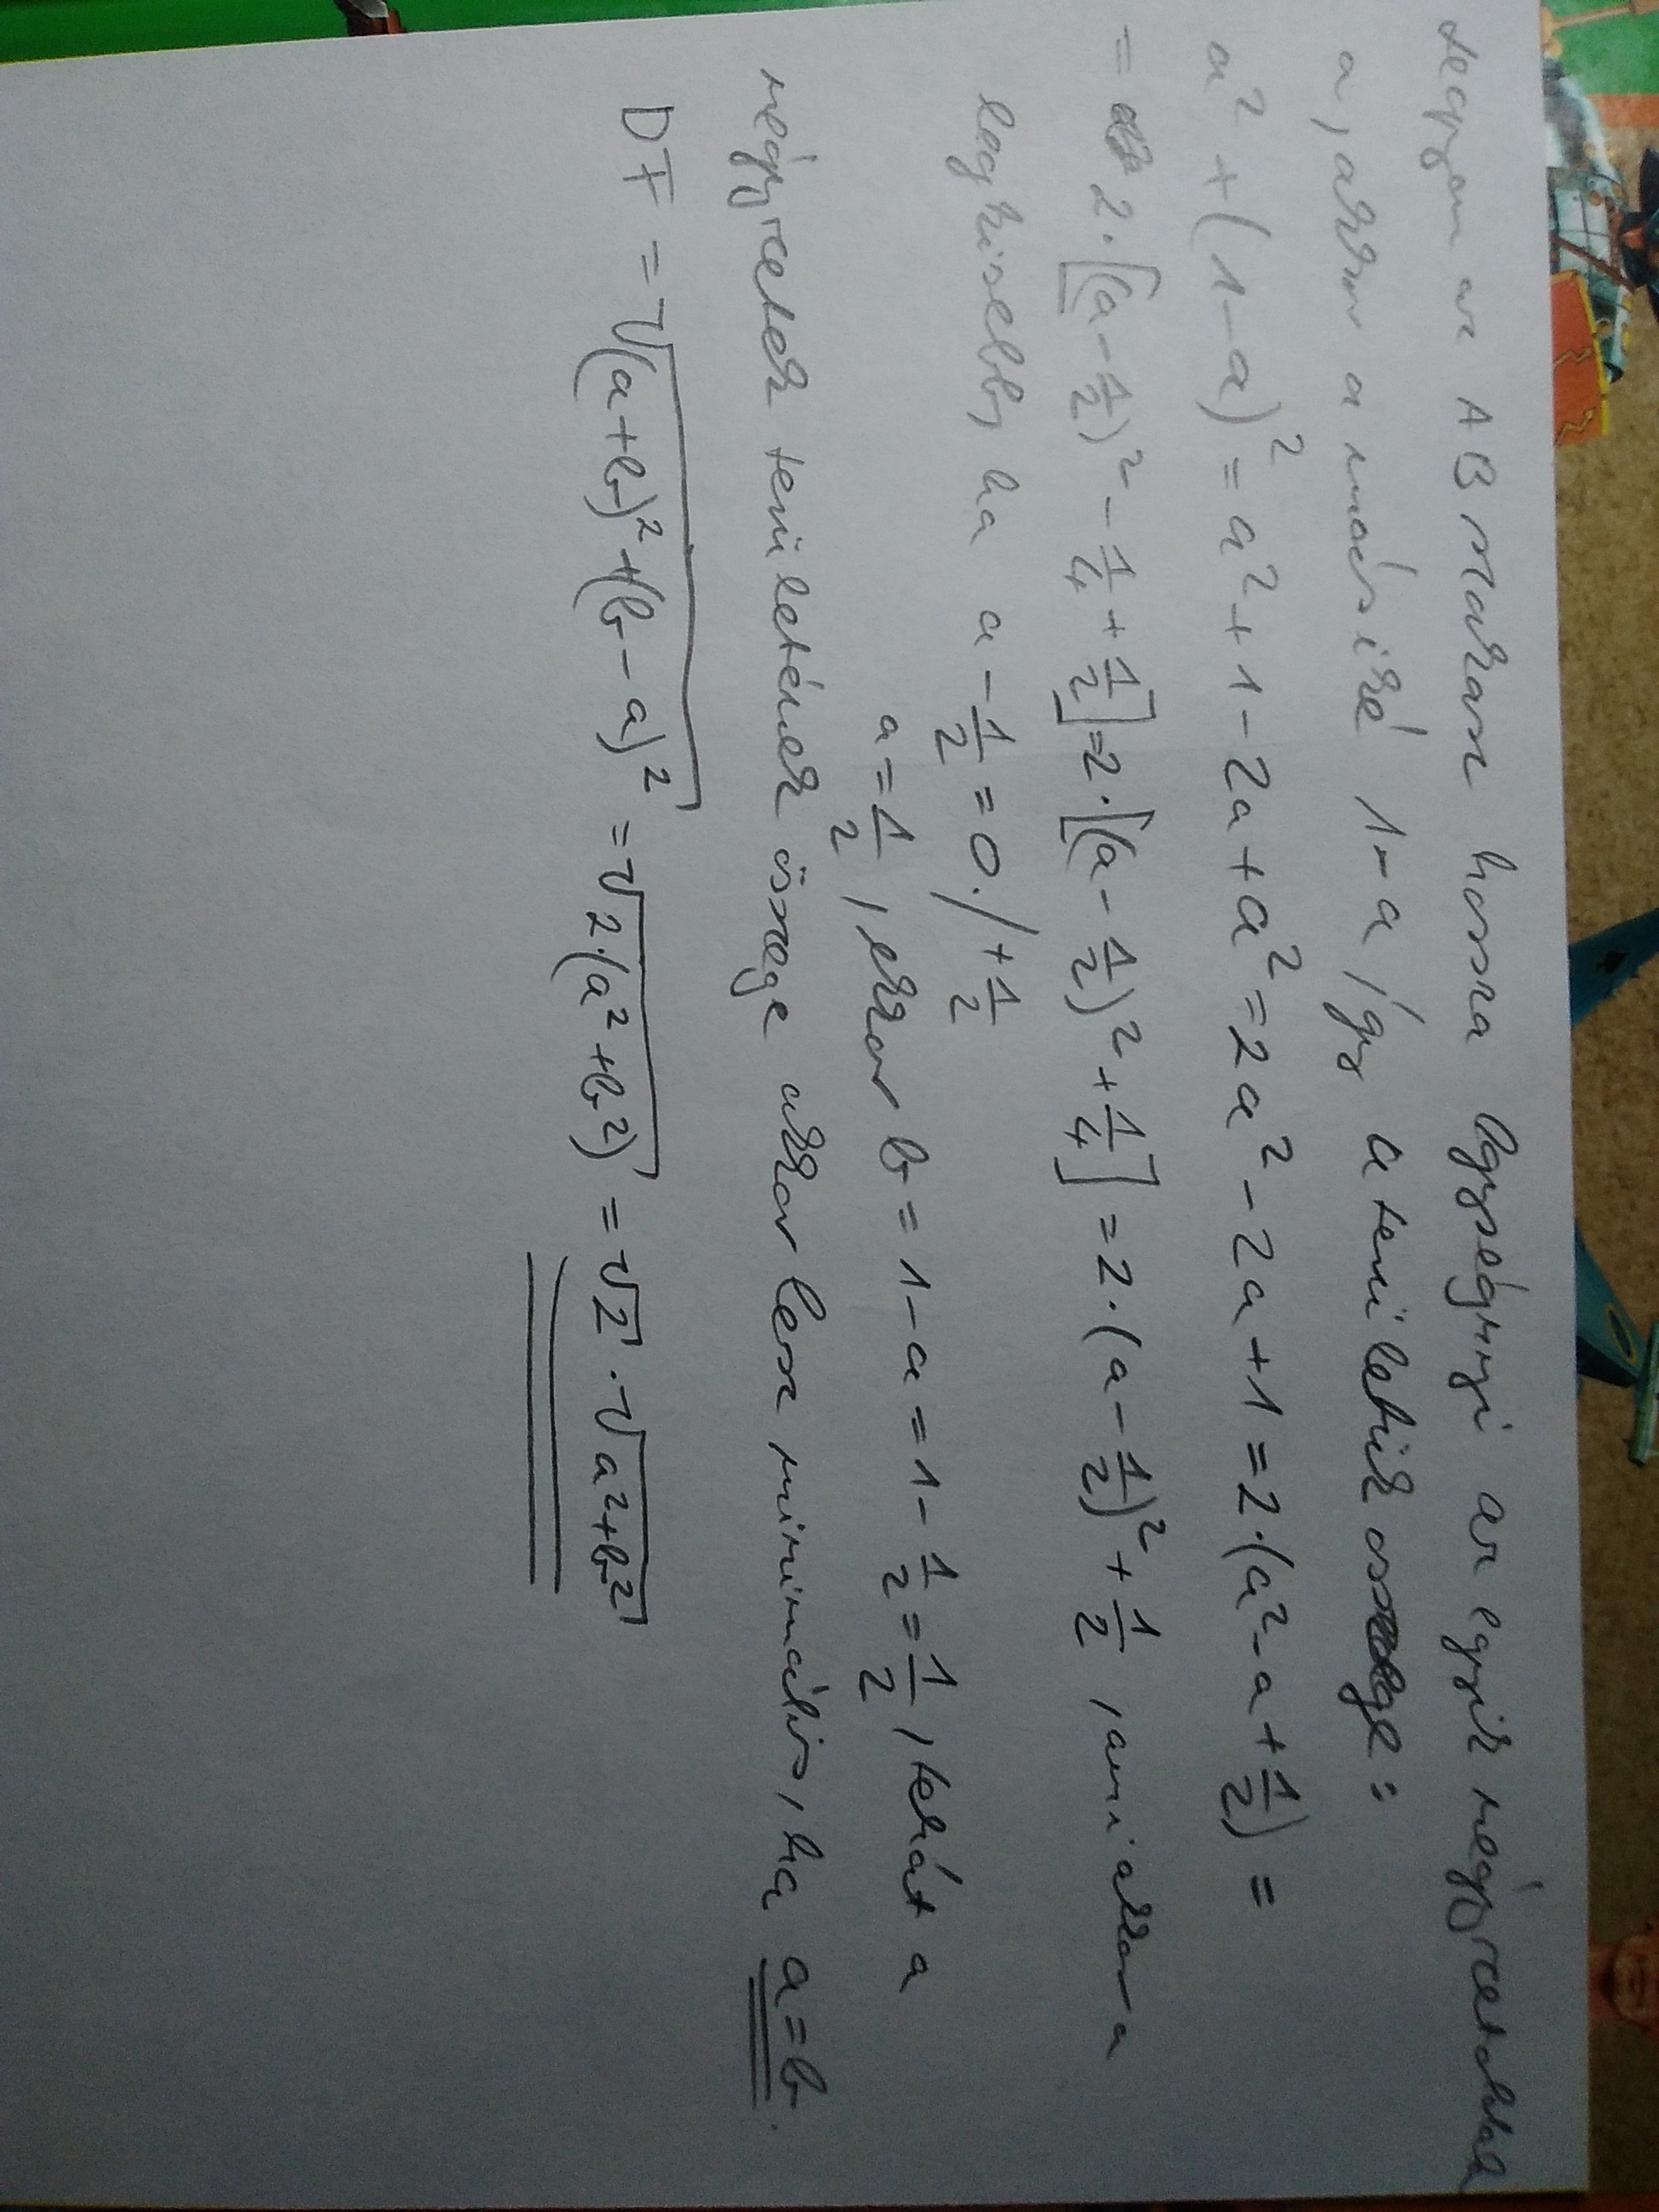 Legyen az AB szakasz hossza egységnyi az egyik négyzetoldal
a, akkor a másiké 1-a, így a területük összege:
a² + (1-a)² = a² + 1 - 2a + a² = 2a² - 2a + 1 = 2·(a² - a + 1/2) =
= 2·[(a - 1/2)² - 1/4 + 1/2] = 2·[(a - 1/2)² + 1/4] = 2·(a - 1/2)² + 1/2, ami akkor a
legkisebb, ha a - 1/2 = 0. /+1/2
a = 1/2, ekkor b = 1 - a = 1 - 1/2 = 1/2, tehát a
négyzetek területének összege akkor lesz minimális, ha a = b.
DF = √((a+b)² + (b-a)²) = √(2·(a² + b²)) = √2 · √(a² + b²)